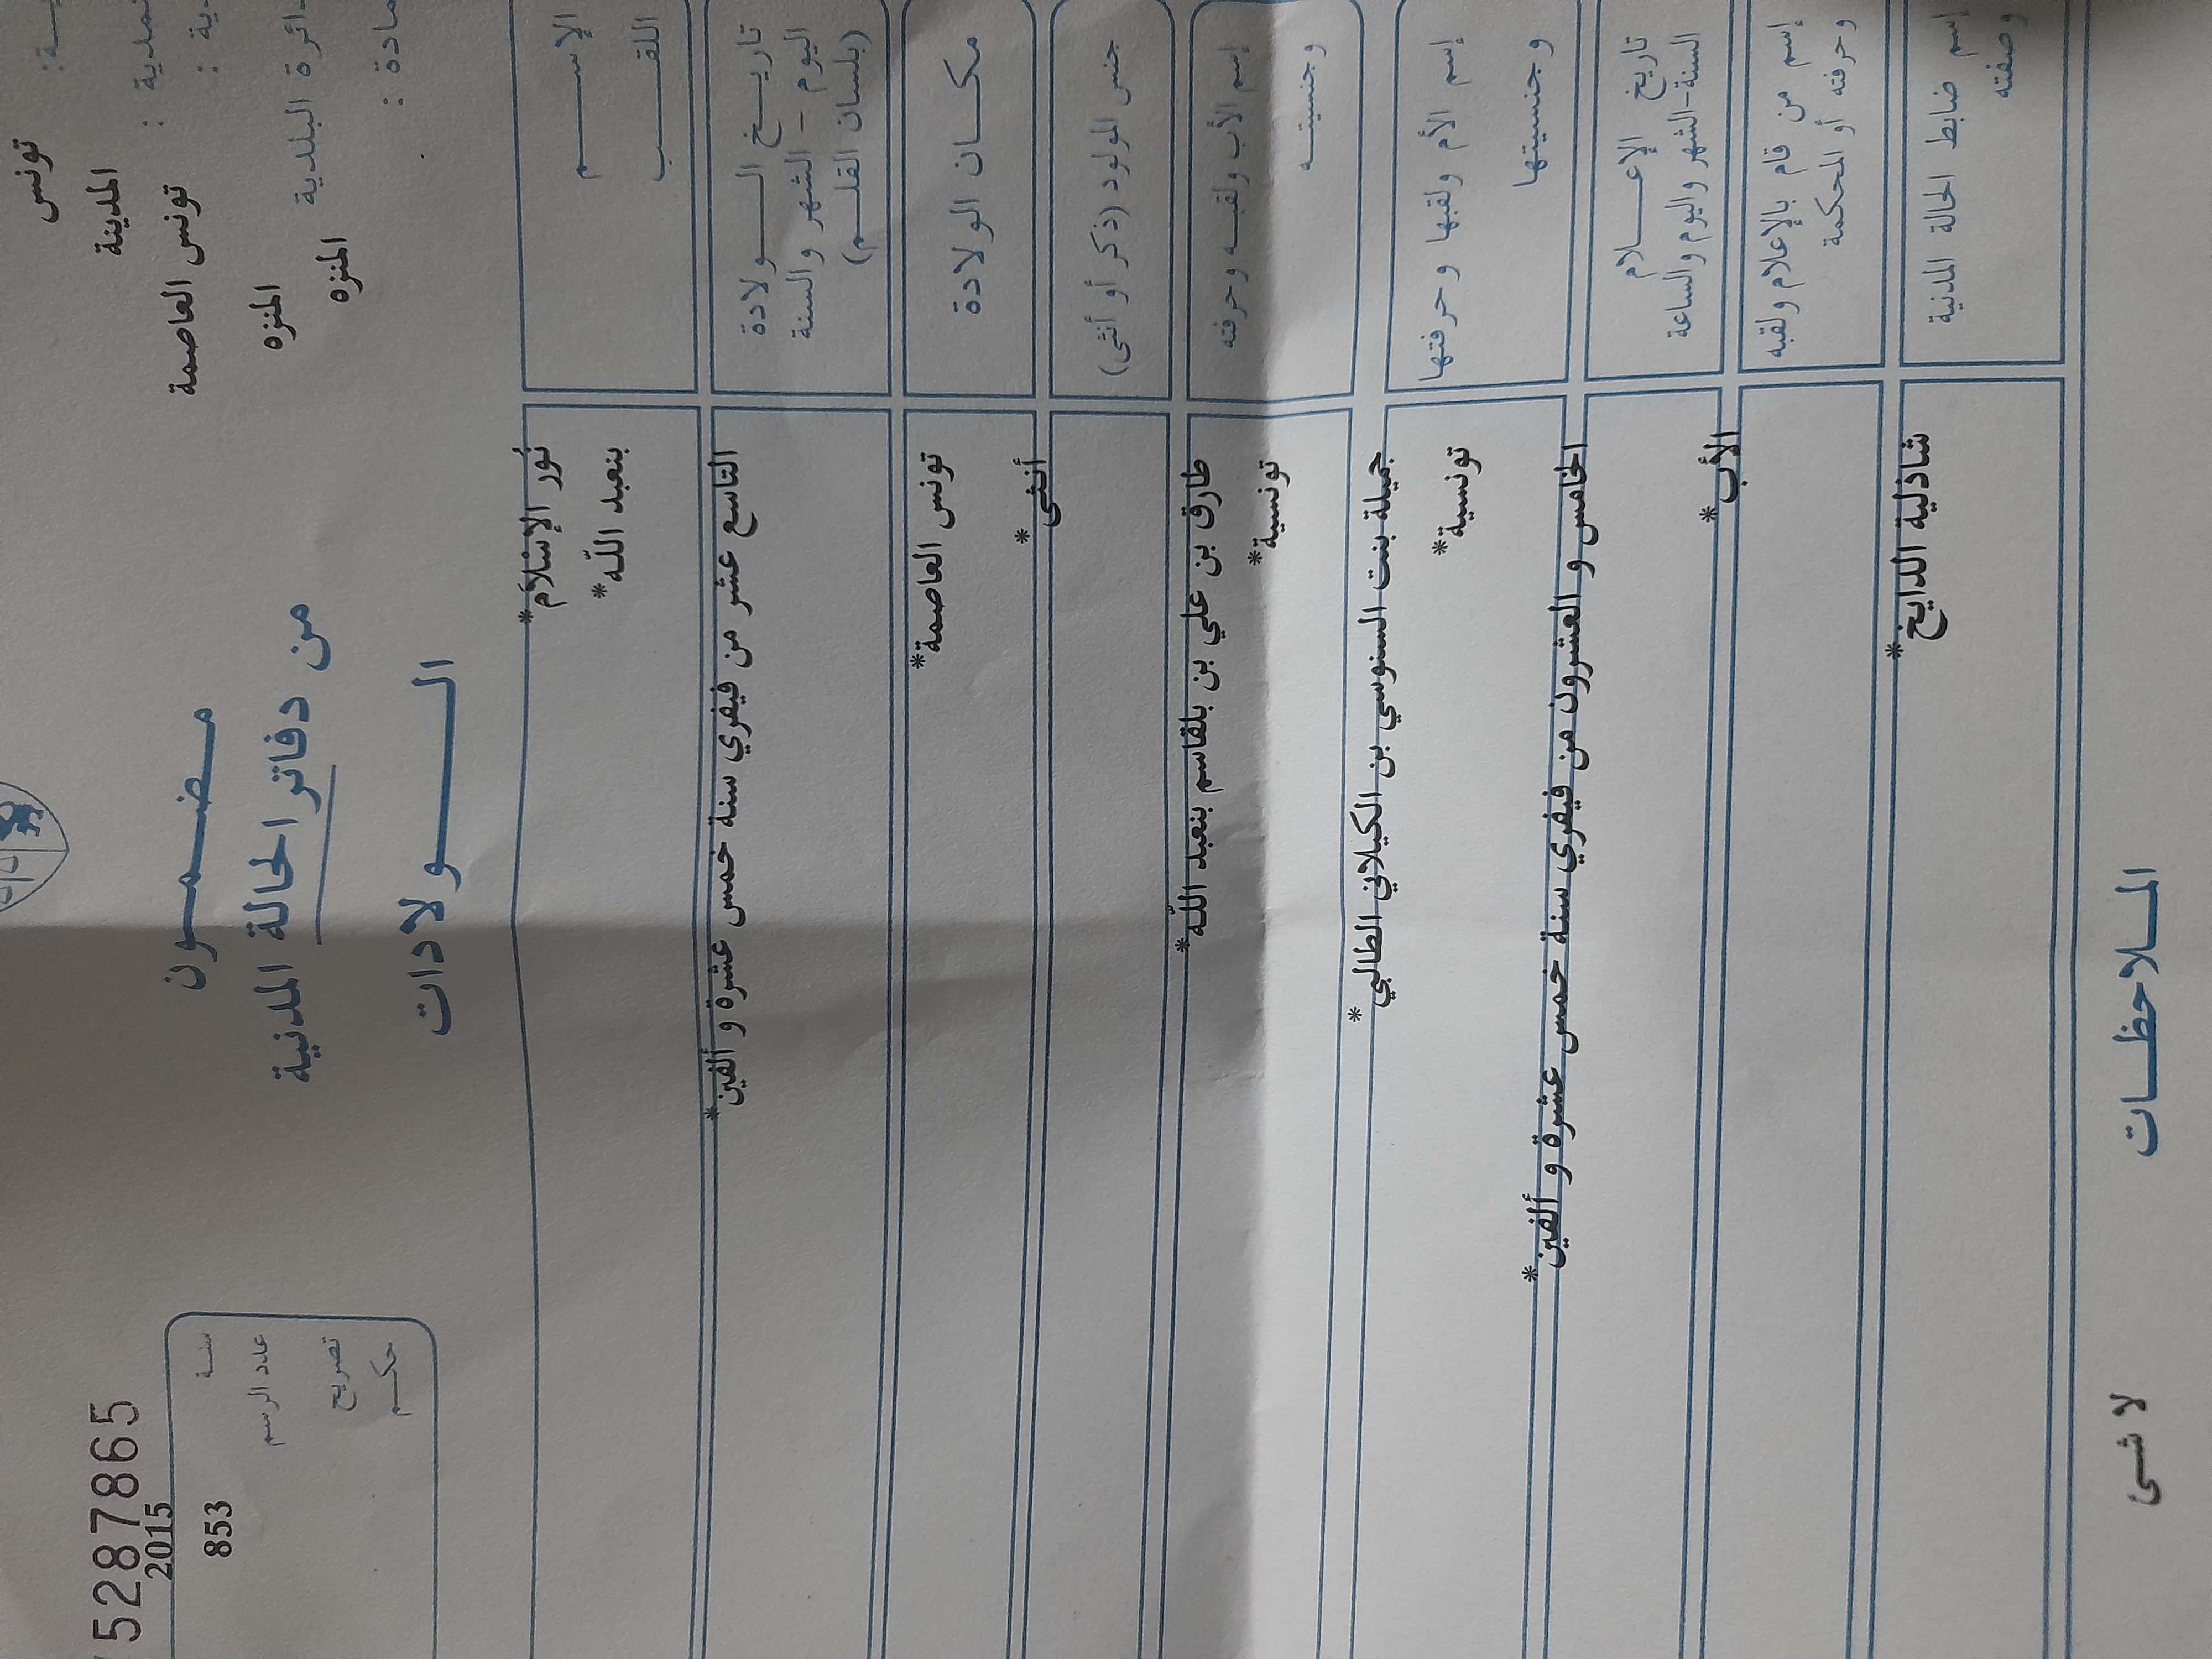 تونس
المدينة
تونس العاصمة
المنزه
دائرة البلدية
المنزه
5287865
2015
سنة
853
عدد الرسم
تصريح
حكم
مضمون
من دفاتر الحالة المدنية
الولادات
الإسم
اللقب
نُور الإسْلاَم*
بنعبد الله*
تاريخ الولادة
اليوم - الشهر والسنة
(بلسان القلم)
التاسع عشر من فيفري سنة خمس عشرة و ألفين*
مكان الولادة
تونس العاصمة*
جنس المولود (ذكر أو أنثى)
أنثى*
إسم الأب ولقبه وحرفته
وجنسيته
طارق بن علي بن بلقاسم بنعبد الله*
تونسية*
إسم الأم ولقبها وحرفتها
وجنسيتها
جميلة بنت السنوسي بن الكيلاني الطالبي*
تونسية*
تاريخ الإعلام
السنة-الشهر واليوم والساعة
الخامس و العشرون من فيفري سنة خمس عشرة و ألفين*
إسم من قام بالإعلام ولقبه
وحرفته أو المحكمة
الأب*
إسم ضابط الحالة المدنية
وصفته
شاذلية الدايخ*
الملاحظات
لا شى